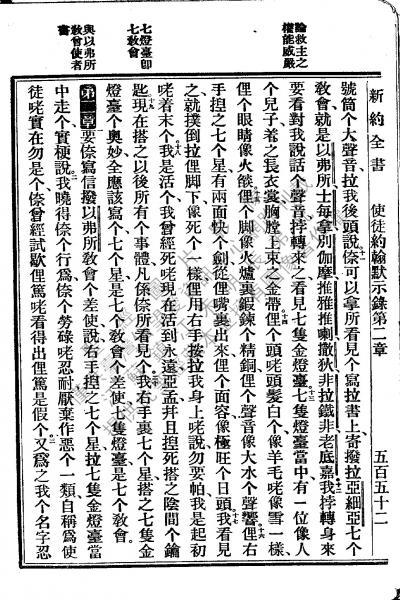 新約全書 使徒約翰默示錄第二章 五百五十二
論救主之
權能威嚴
七燈臺卽
七敎會
與以弗所
敎會使者
書
號筒个大聲音拉我後頭說㑚可以拿所看見个寫拉書上寄撥拉亞細亞七个
敎會就是以弗所士每拿別伽摩推雅推喇撒狄非拉鐵非老底嘉我挬轉身來
要看對我說話个聲音挬轉來之看見七隻金燈臺七隻燈臺當中有一位像人
个兒子着之長衣裳胸膛上束之金帶俚个頭咾頭髮白个像羊毛咾像雪一樣
俚个眼睛像火燄俚个脚像火爐裏鍛鍊个精銅俚个聲音像大水个聲響俚右
手揑之七个星有兩面快个劍從俚嘴裏出來俚个面容像極旺个日頭我看見
之就撲倒拉俚脚下像死个一樣俚用右手按拉我身上咾說勿要怕我是起初
咾着末个我是活个我曾經死咾現在活到永遠亞孟幷且揑死搭之陰間个鑰
匙現在搭之以後所有个事體凡係㑚所看見个我右手裏七个星搭之七隻金
燈臺个奧妙全應該寫个七个星是七个敎會个差使七隻燈臺是七个敎會
第二章要㑚寫信撥以弗所敎會个差使說右手揑之七个星拉七隻金燈臺當
中走个實梗說我曉得㑚个行爲㑚个勞碌咾忍耐厭棄作惡个一類自稱爲使
徒咾實在勿是个㑚曾經試歇俚篤咾看得出俚篤是假个又爲之我个名字忍